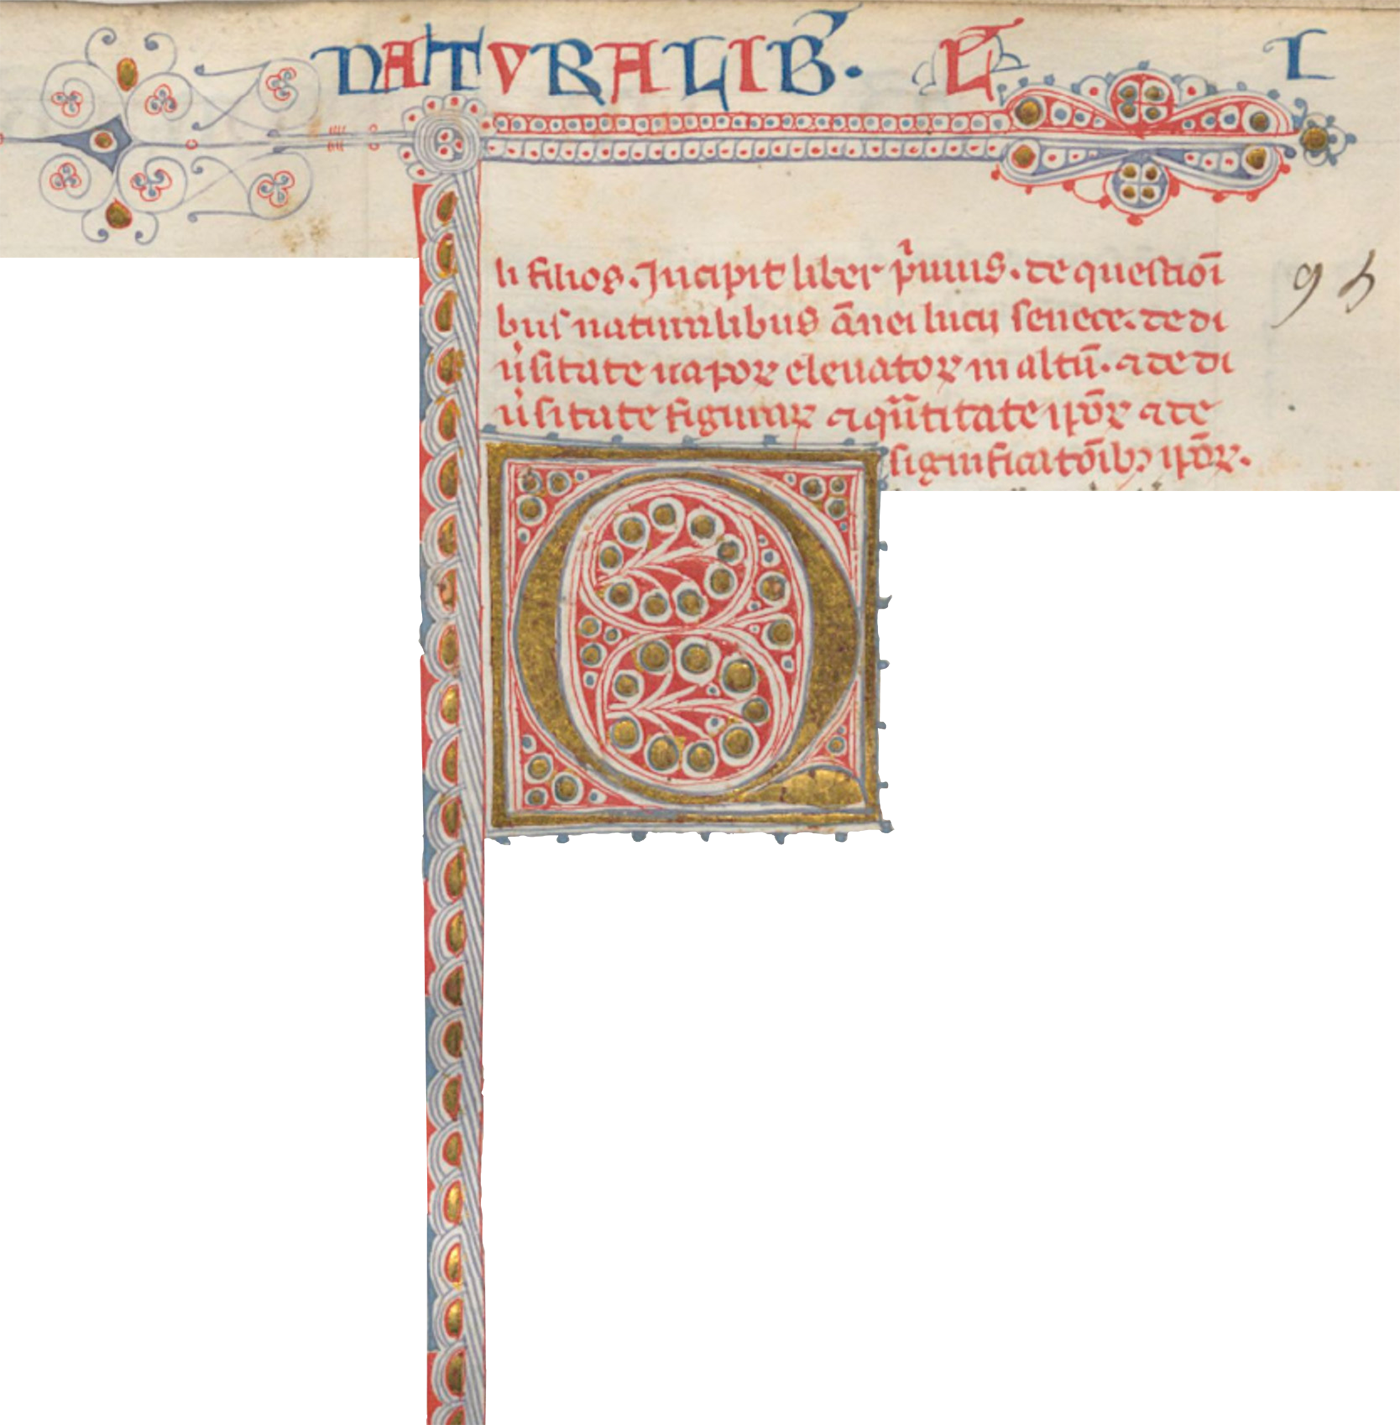 NATVRALIB̄. L̄ L
li filios. Incipit liber p̾imus. de questioı̄
bus naturalibus ānei lucii senece. de di
u̾sitate uapoꝝ eleuatoꝝ in altū. ⁊ de di
u̾sitate figuraꝝ ⁊ qūtitate ip̄oꝝ ⁊ de
significatōıbꝫ ip̄oꝝ.
95
Q